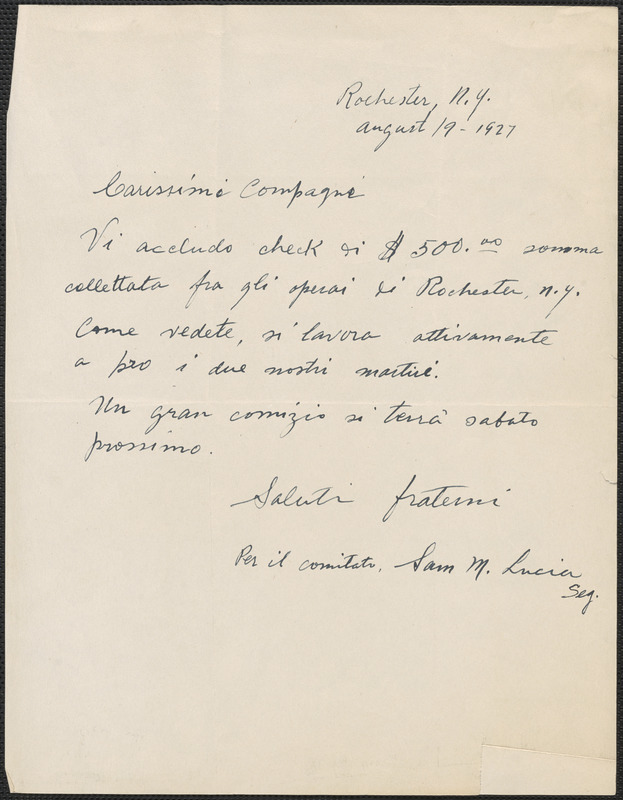 Rochester, N.Y.
August 19 - 1927
Carissimi Compagni
Vi accludo check di $ 500.00 somma
collettata fra gli operai di Rochester, N.Y.
Come vedete, si lavora attivamente
a pro i due nostri martiri.
Un gran comizio si terrà sabato
prossimo.
Saluti fraterni
Per il comitato, Sam M. Lucia
Seg.